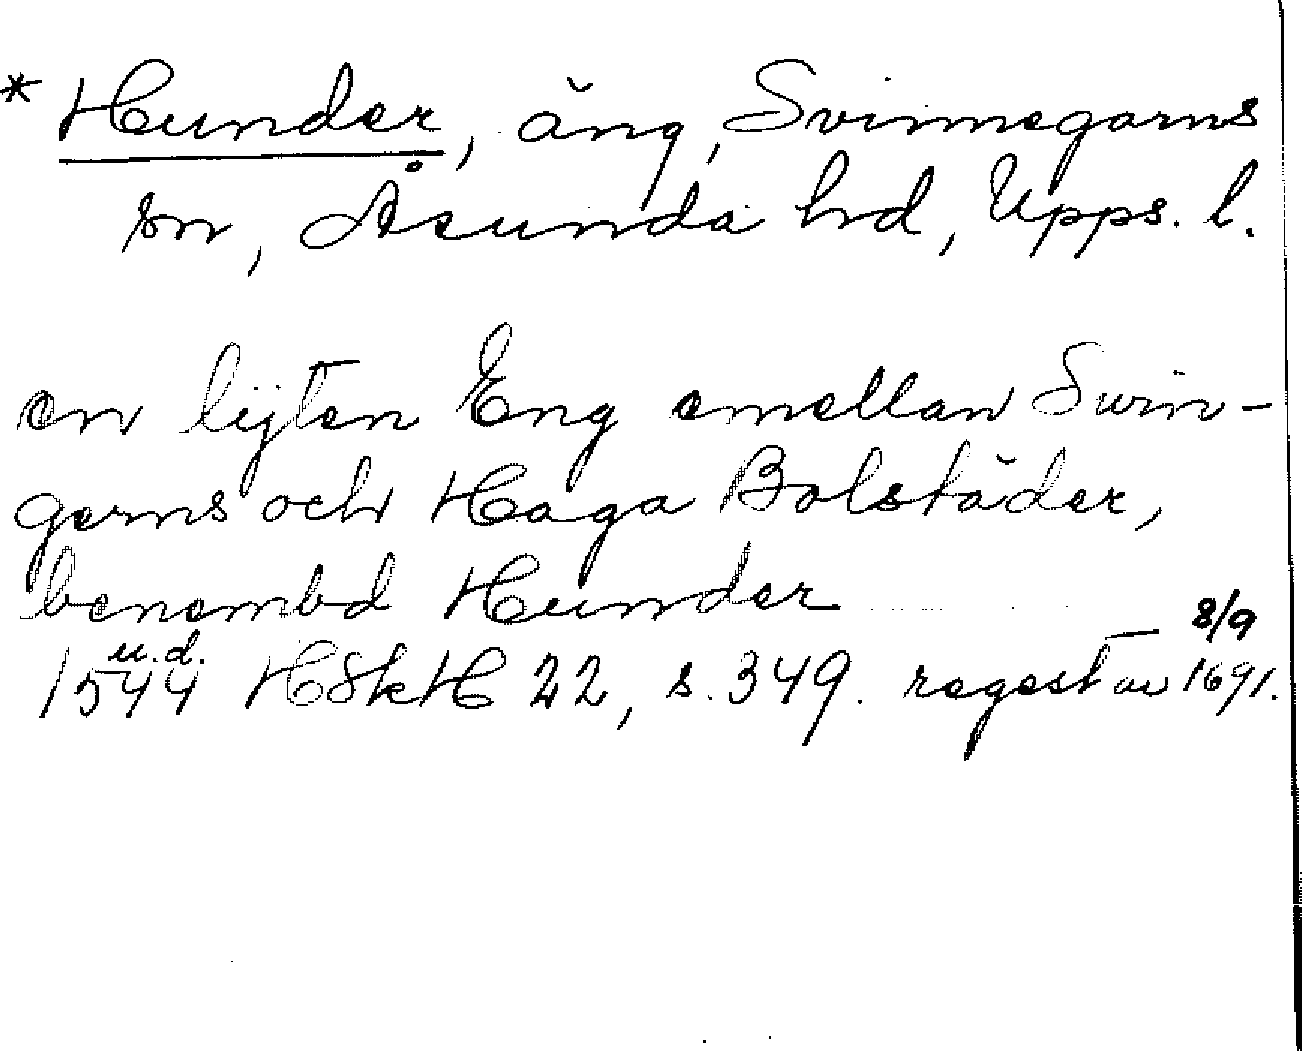 * Hunder, äng, Svinnegarns
sn, Åsunda hd, Upps. l.
en lijten Eng emellan Swin-
gerns och Haga Bolstäder,
benembd Hunder
1544 u.d. HSkH 22, s. 349. regest av 8/9 1691.